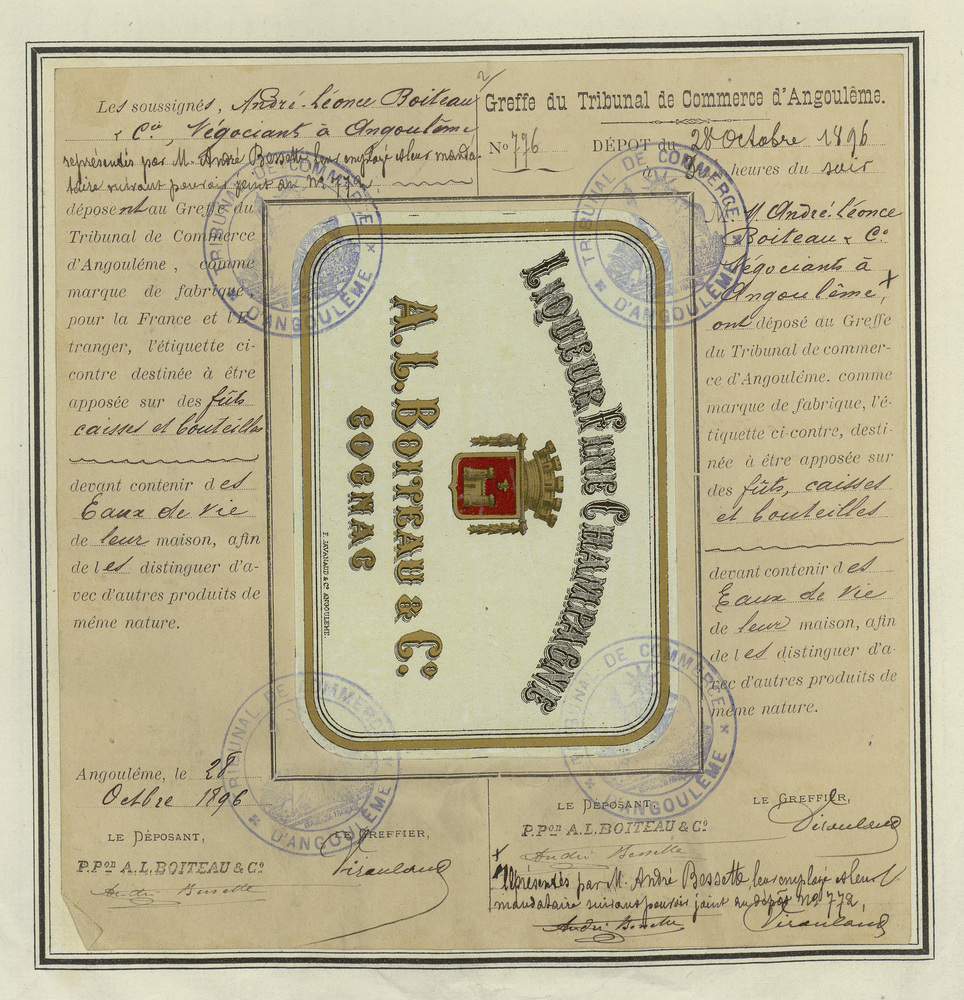 Les soussignés, André-Léonce Boiteau
& Cie, Négociants à Angoulême
représentés par M. André Bessette leur employé et leur manda-
taire suivant pouvoir joint au No 772.
déposent au Greffe du
Tribunal de Commerce
d'Angoulême, comme
marque de fabrique
pour la France et l'É-
tranger, l'étiquette ci-
contre destinée à être
apposée sur des fûts
caisses et bouteilles
devant contenir des
Eaux de Vie
de leur maison, afin
de les distinguer d'a-
vec d'autres produits de
même nature.
Angoulême, le 28
Octbre 1896
LE DÉPOSANT,
LE GREFFIER,
P.Pon A.L.BOITEAU & Co
André Bessette
LIQUEUR FINE CHAMPAGNE
A.L.BOITEAU & Co.
COGNAC
ANGOULEME.
Greffe du Tribunal de Commerce d'Angoulême.
No 776
DÉPOT du 28 Octobre 1896
à 3 heures du soir
M.M. André-Léonce
Boiteau & Co
Négociants à
Angoulême, x
ont déposé au Greffe
du Tribunal de commer-
ce d'Angoulême. comme
marque de fabrique, l'é-
tiquette ci-contre, desti-
née à être apposée sur
des fûts, caisses
et bouteilles
devant contenir des
Eaux de Vie
de leur maison, afin
de les distinguer d'a-
vec d'autres produits de
même nature.
LE DÉPOSANT,
LE GREFFIER,
P.Pon A.L.BOITEAU & Co
André Bessette
x représentés par M. André Bessette leur employé et leur
mandataire suivant pouvoir joint au dépôt No 772,
André Bessette
TRIBUNAL DE COMMERCE
* D'ANGOULÊME *
TRIBUNAL DE COMMERCE
* D'ANGOULÊME *
TRIBUNAL DE COMMERCE
* D'ANGOULÊME *
TRIBUNAL DE COMMERCE
* D'ANGOULÊME *